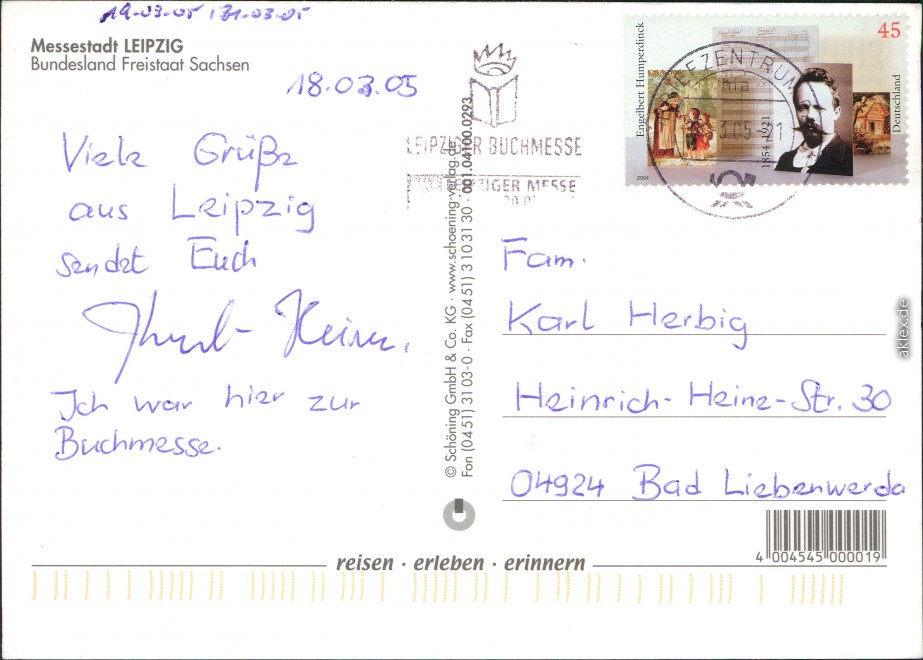 19.03.05 / 31.03.05
Messestadt LEIPZIG
Bundesland Freistaat Sachsen
18.03.05
Viele Grüße
aus Leipzig
sendet Euch
Ich war hier zur
Buchmesse.
LEIPZIGER BUCHMESSE
LEIPZIGER MESSE
© Schöning GmbH & Co. KG · www.schoening-verlag.de
Fon (04 51) 31 03-0 · Fax (04 51) 3 10 31 30 · 001.04100.0293
Engelbert Humperdinck
45
1854–1921
Deutschland
2004
Fam.
Karl Herbig
Heinrich-Heine-Str. 30
04924 Bad Liebenwerda
4 004545 000019
reisen · erleben · erinnern
aklex.de